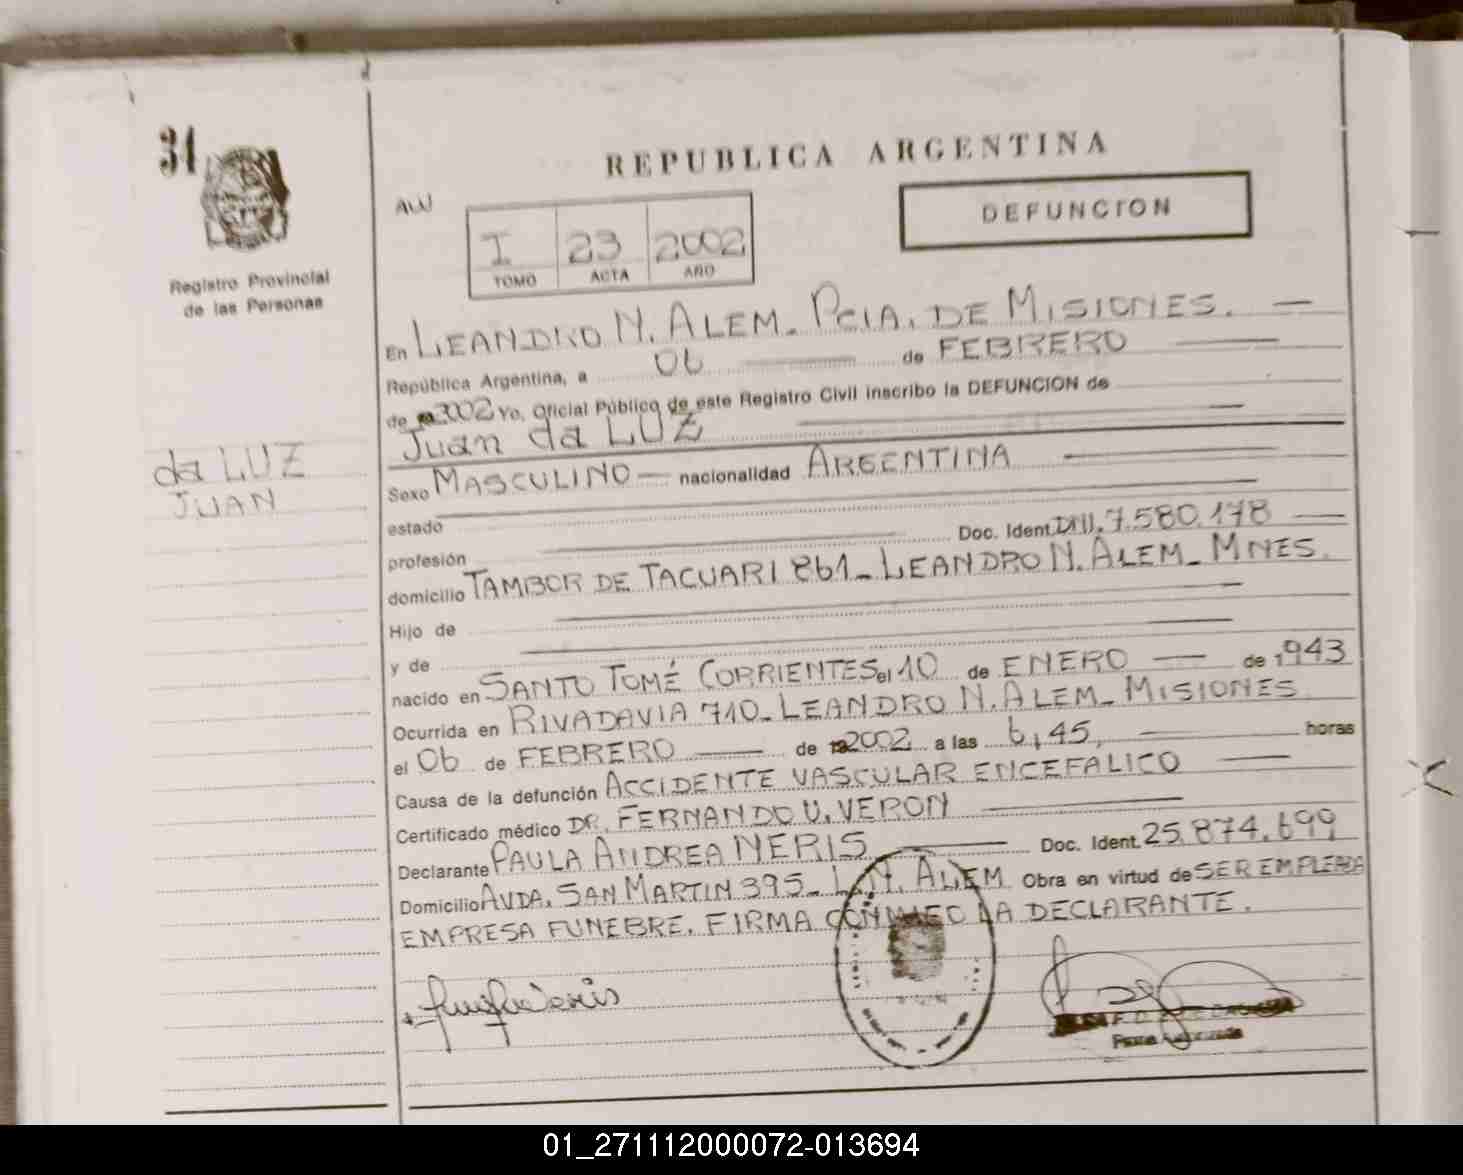 31
Registro Provincial
de las Personas
REPUBLICA ARGENTINA
AW
DEFUNCION
I 23 2002
TOMO ACTA AÑO
En LEANDRO N. ALEM - PCIA. DE MISIONES. —
República Argentina, a 06 — de FEBRERO —
de 2002 Yo, Oficial Público de este Registro Civil inscribo la DEFUNCION de
Juan da LUZ —
da LUZ
JUAN
Sexo MASCULINO — nacionalidad ARGENTINA —
estado —
profesión — Doc. Ident. DNI. 7.580.178 —
domicilio TAMBOR DE TACUARI 861 - LEANDRO N. ALEM - MNES.
Hijo de —
y de —
nacido en SANTO TOMÉ CORRIENTES el 10 de ENERO — de 1943
Ocurrida en RIVADAVIA 710 - LEANDRO N. ALEM - MISIONES
el 06 de FEBRERO — de 2002 a las 6,45, — horas
Causa de la defunción ACCIDENTE VASCULAR ENCEFALICO —
Certificado médico DR. FERNANDO U. VERON —
Declarante PAULA ANDREA NERIS — Doc. Ident. 25.874.699
Domicilio AVDA. SAN MARTIN 395 - L.N. ALEM Obra en virtud de SER EMPLEADA
EMPRESA FUNEBRE. FIRMA CONMIGO LA DECLARANTE.
01_271112000072-013694